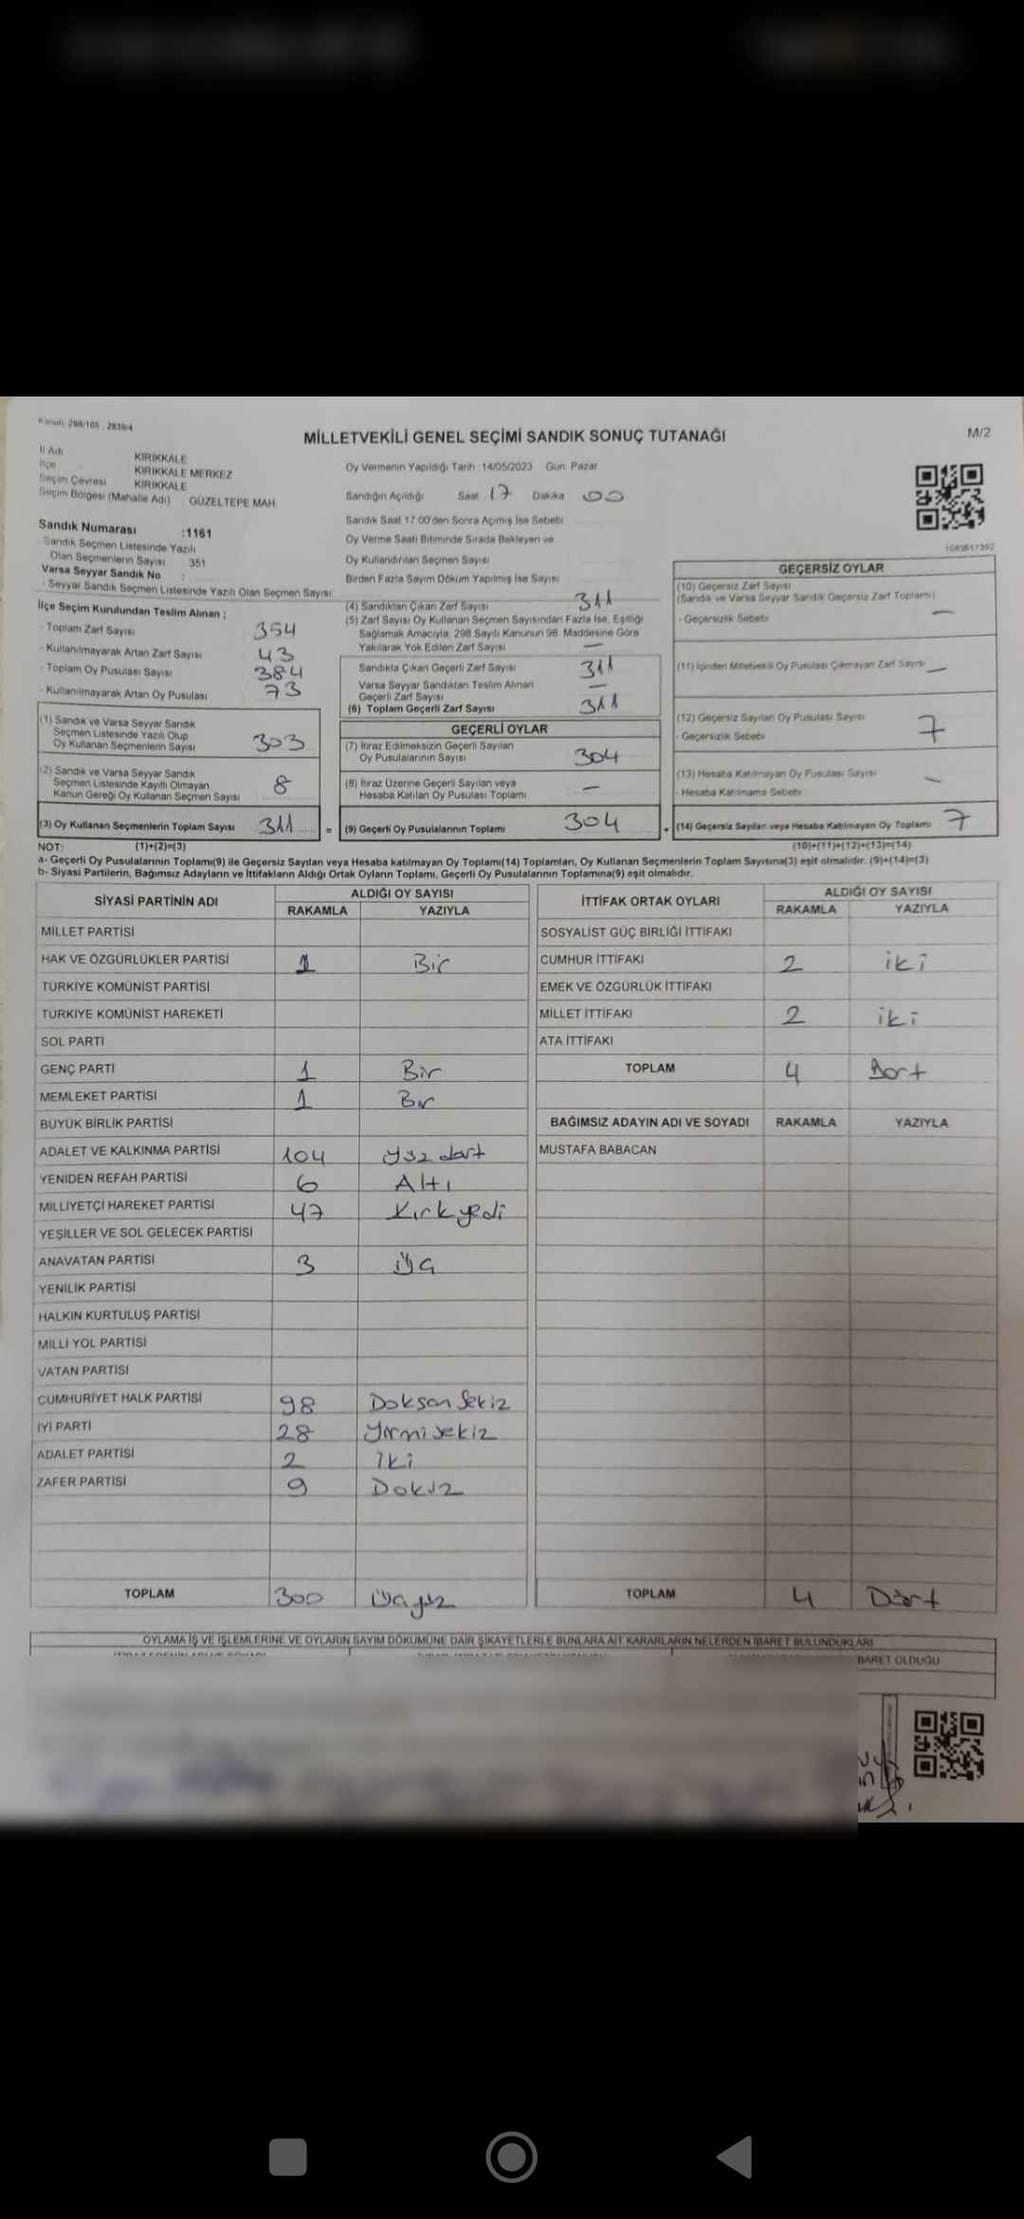 Kanun: 298/105 , 2839/4
MİLLETVEKİLİ GENEL SEÇİMİ SANDIK SONUÇ TUTANAĞI
M/2
İl Adı KIRIKKALE
İlçe KIRIKKALE MERKEZ
Seçim Çevresi KIRIKKALE
Seçim Bölgesi (Mahalle Adı) GÜZELTEPE MAH
Oy Vermenin Yapıldığı Tarih 14/05/2023 Gün Pazar
Sandığın Açıldığı Saat 17 Dakika 00
Sandık Saat 17:00'den Sonra Açımış İse Sebebi
Oy Verme Saati Bitiminde Sırada Bekleyen ve
Oy Kullandırılan Seçmen Sayısı
Birden Fazla Sayım Döküm Yapılmış İse Sayısı
Sandık Numarası :1161
Sandık Seçmen Listesinde Yazılı
Olan Seçmenlerin Sayısı 351
Varsa Seyyar Sandık No :
- Seyyar Sandık Seçmen Listesinde Yazılı Olan Seçmen Sayısı:
İlçe Seçim Kurulundan Teslim Alınan ;
- Toplam Zarf Sayısı 354
- Kullanılmayarak Artan Zarf Sayısı 43
- Toplam Oy Pusulası Sayısı 384
- Kullanılmayarak Artan Oy Pusulası 73
(1) Sandık ve Varsa Seyyar Sandık
Seçmen Listesinde Yazılı Olup
Oy Kullanan Seçmenlerin Sayısı 303
(2) Sandık ve Varsa Seyyar Sandık
Seçmen Listesinde Kayıtlı Olmayan
Kanun Gereği Oy Kullanan Seçmen Sayısı 8
(3) Oy Kullanan Seçmenlerin Toplam Sayısı 311 =
(4) Sandıktan Çıkan Zarf Sayısı 311
(5) Zarf Sayısı Oy Kullanan Seçmen Sayısından Fazla İse, Eşitliği
Sağlamak Amacıyla, 298 Sayılı Kanunun 98. Maddesine Göre
Yakılarak Yok Edilen Zarf Sayısı —
Sandıkta Çıkan Geçerli Zarf Sayısı 311
Varsa Seyyar Sandıktan Teslim Alınan
Geçerli Zarf Sayısı —
(6) Toplam Geçerli Zarf Sayısı 311
GEÇERLİ OYLAR
(7) İtiraz Edilmeksizin Geçerli Sayılan
Oy Pusulalarının Sayısı 304
(8) İtiraz Üzerine Geçerli Sayılan veya
Hesaba Katılan Oy Pusulası Toplamı —
(9) Geçerli Oy Pusulalarının Toplamı 304 +
1083617392
GEÇERSİZ OYLAR
(10) Geçersiz Zarf Sayısı
(Sandık ve Varsa Seyyar Sandık Geçersiz Zarf Toplamı)
- Geçersizlik Sebebi —
(11) İçinden Milletvekili Oy Pusulası Çıkmayan Zarf Sayısı —
(12) Geçersiz Sayılan Oy Pusulası Sayısı 7
- Geçersizlik Sebebi
(13) Hesaba Katılmayan Oy Pusulası Sayısı —
- Hesaba Katılmama Sebebi
(14) Geçersiz Sayılan veya Hesaba Katılmayan Oy Toplamı 7
NOT: (1)+(2)=(3) (10)+(11)+(12)+(13)=(14)
a- Geçerli Oy Pusulalarının Toplamı(9) ile Geçersiz Sayılan veya Hesaba katılmayan Oy Toplamı(14) Toplamları, Oy Kullanan Seçmenlerin Toplam Sayısına(3) eşit olmalıdır. (9)+(14)=(3)
b- Siyasi Partilerin, Bağımsız Adayların ve İttifakların Aldığı Ortak Oyların Toplamı, Geçerli Oy Pusulalarının Toplamına(9) eşit olmalıdır.
SİYASİ PARTİNİN ADI ALDIĞI OY SAYISI
RAKAMLA YAZIYLA
MİLLET PARTİSİ
HAK VE ÖZGÜRLÜKLER PARTİSİ 1 Bir
TÜRKİYE KOMÜNİST PARTİSİ
TÜRKİYE KOMÜNİST HAREKETİ
SOL PARTİ
GENÇ PARTİ 1 Bir
MEMLEKET PARTİSİ 1 Bır
BÜYÜK BİRLİK PARTİSİ
ADALET VE KALKINMA PARTİSİ 104 yüz dört
YENİDEN REFAH PARTİSİ 6 Altı
MİLLİYETÇİ HAREKET PARTİSİ 47 Kırkyedi
YEŞİLLER VE SOL GELECEK PARTİSİ
ANAVATAN PARTİSİ 3 Üç
YENİLİK PARTİSİ
HALKIN KURTULUŞ PARTİSİ
MİLLİ YOL PARTİSİ
VATAN PARTİSİ
CUMHURİYET HALK PARTİSİ 98 Doksan Sekiz
İYİ PARTİ 28 Yirmisekiz
ADALET PARTİSİ 2 İki
ZAFER PARTİSİ 9 Dokuz
TOPLAM 300 Üçyüz
İTTİFAK ORTAK OYLARI ALDIĞI OY SAYISI
RAKAMLA YAZIYLA
SOSYALİST GÜÇ BİRLİĞİ İTTİFAKI
CUMHUR İTTİFAKI 2 iki
EMEK VE ÖZGÜRLÜK İTTİFAKI
MİLLET İTTİFAKI 2 iki
ATA İTTİFAKI
TOPLAM 4 Dört
BAĞIMSIZ ADAYIN ADI VE SOYADI RAKAMLA YAZIYLA
MUSTAFA BABACAN
TOPLAM 4 Dört
OYLAMA İŞ VE İŞLEMLERİNE VE OYLARIN SAYIM DÖKÜMÜNE DAİR ŞİKAYETLERLE BUNLARA AİT KARARLARIN NELERDEN İBARET BULUNDUKLARI
İBARET OLDUĞU